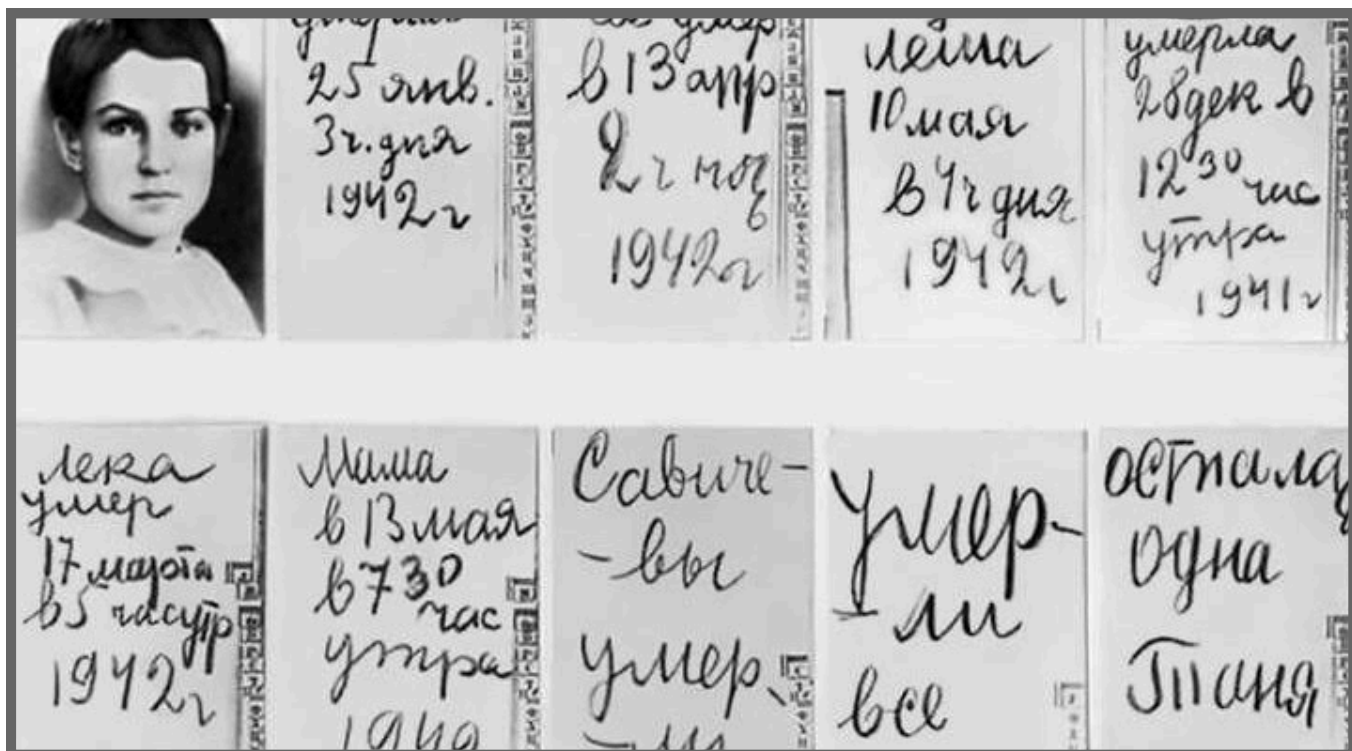 25 янв.
3 ч. дня
1942 г
умер
в 13 апр
2 ч ноч
1942 г
Леша
10 мая
в 4 ч дня
1942 г
умерла
28 дек в
12 30 час
утра
1941 г
Лека
умер
17 марта
в 5 час утр
1942 г
Мама
в 13 мая
в 7 30
час
утра
1942
Савиче-
-вы
умер-
-ли
умер-
-ли
все
осталас
одна
Таня